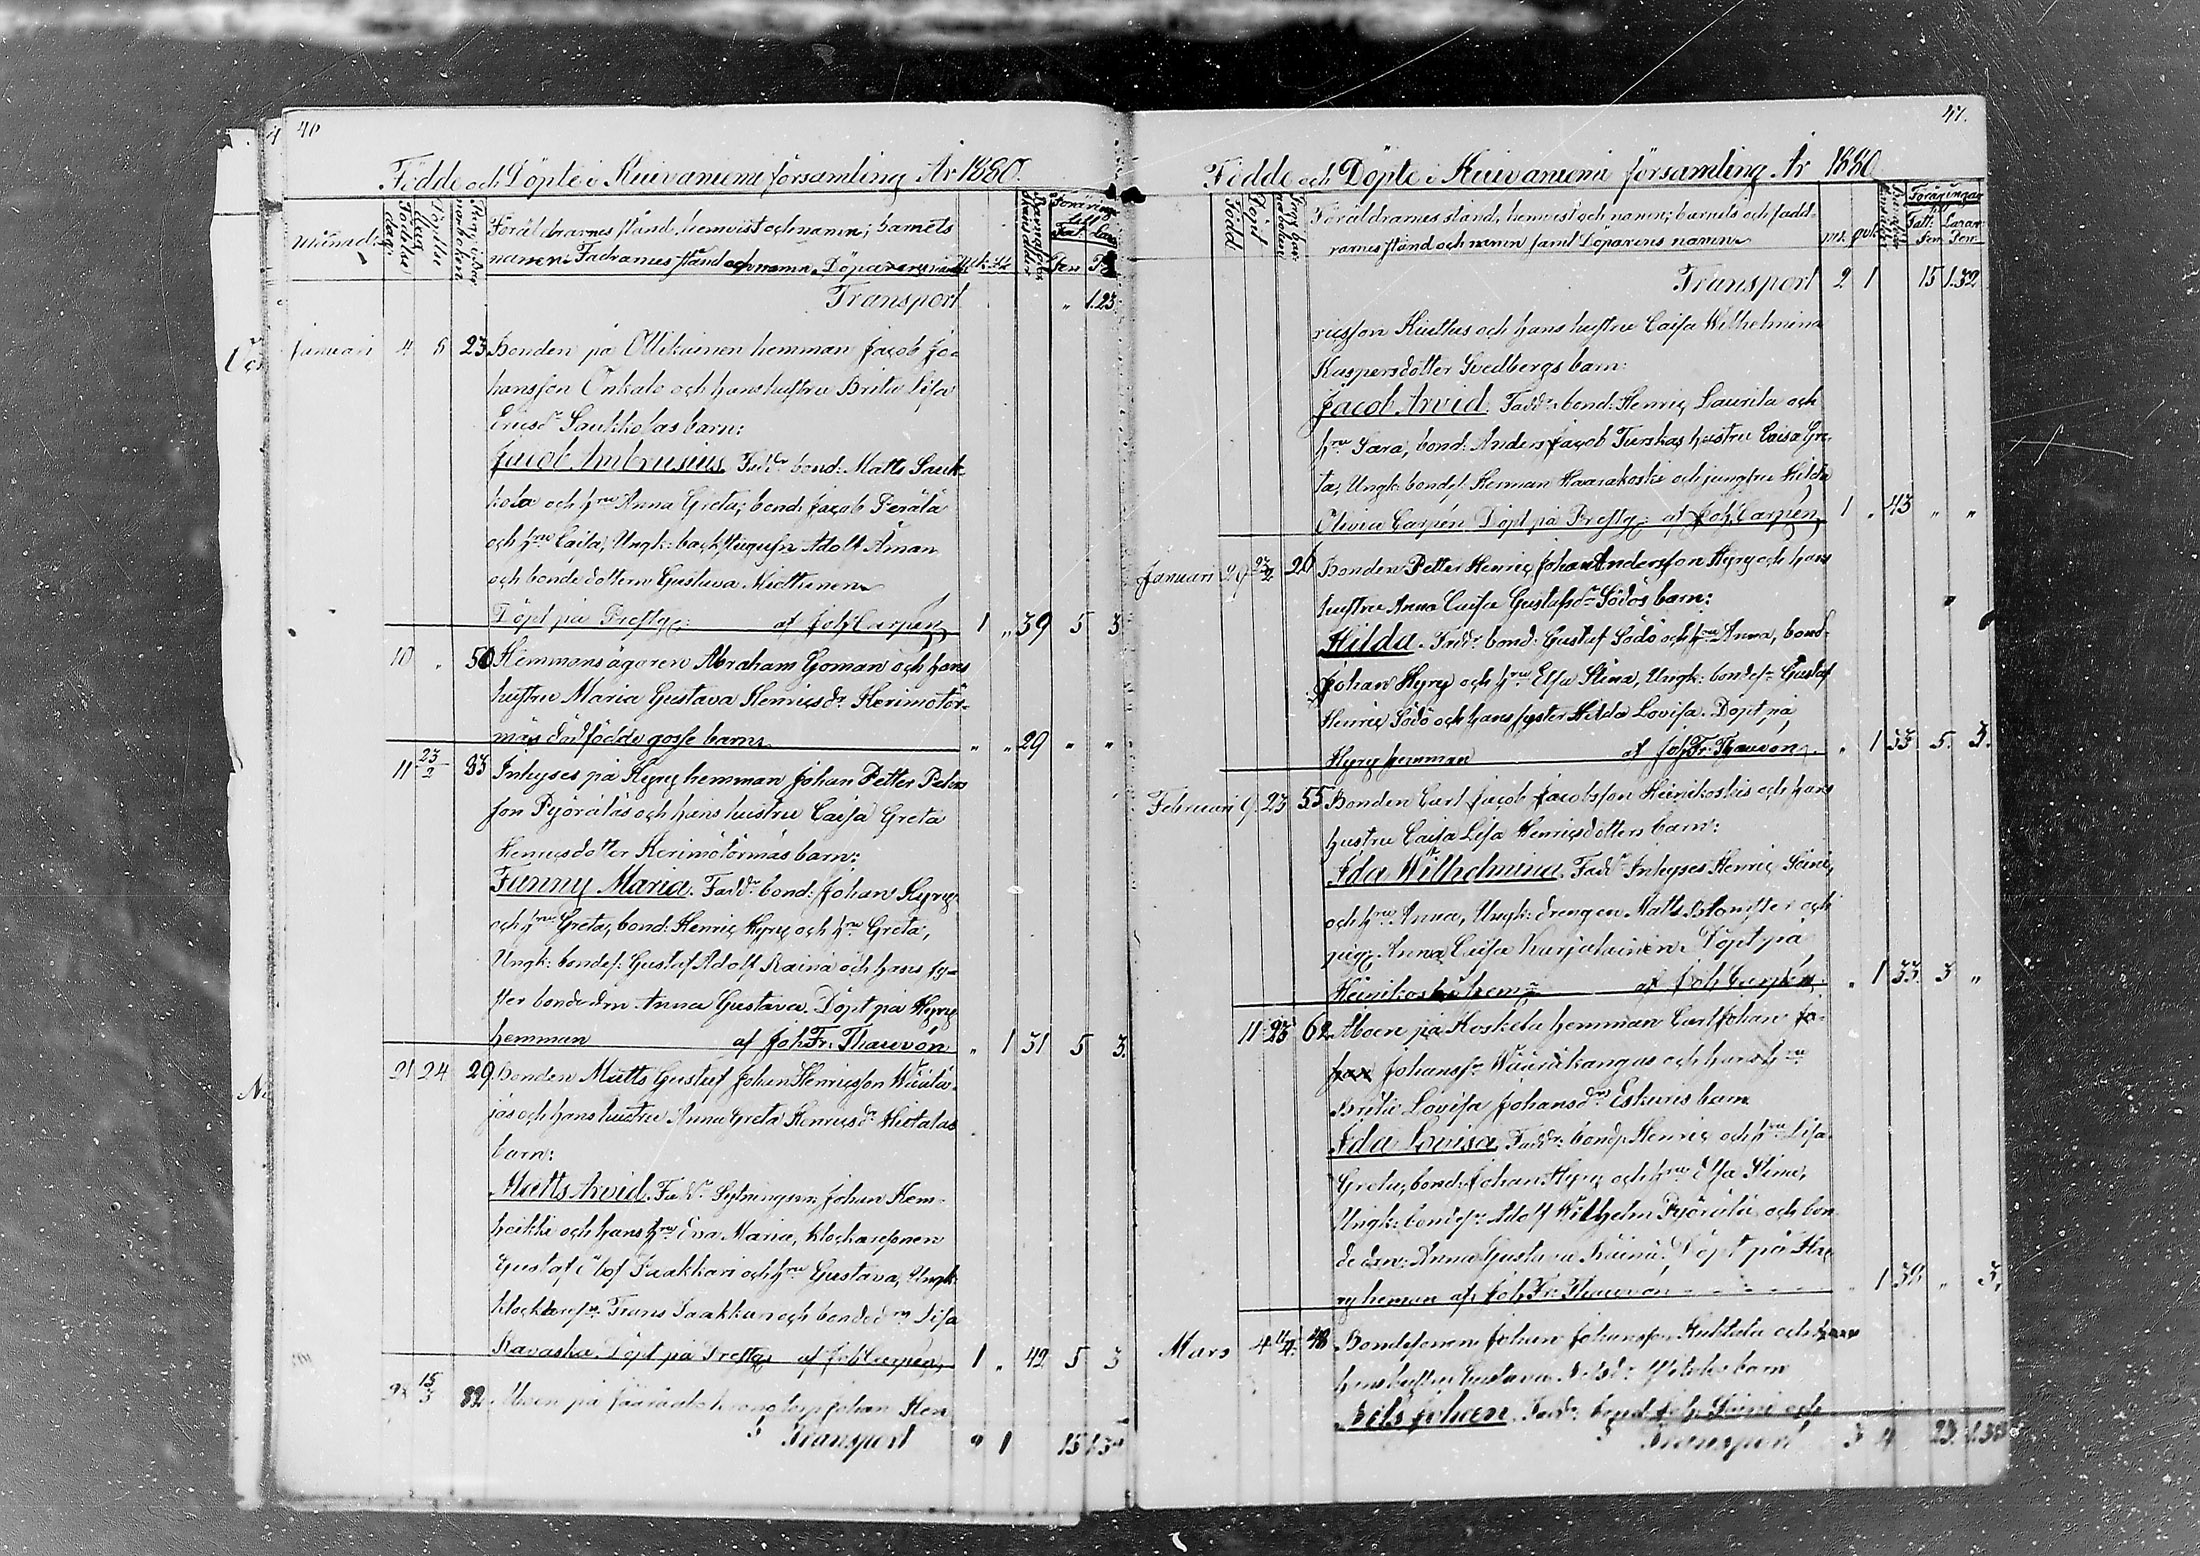 40
Födde och Döpte i Kuivaniemi församling År 1880.
Månad.
Födelse dag.
Döpelse dag
Föräldrarnes stånd, hemvist och namn; barnets
namn. Faddrarnes stånd och namn. Döparens namn
Transport " 1.23.
Januari 4 6 23 Bonden på Ollikainen hemman Jacob Jo-
hansson Onkalo och hans hustru Brita Lisa
Ericsdr Saukkolas barn:
Jacob Ambrusius. Faddr bond: Matts Sauk-
kola och hru Anna Greta; bond: Jacob Perälä
och hru Caisa, Ungk: Adolf Åman
och bonde dottern Gustava Miettinen.
Döpt på Prestg: af Joh Carpén, 1 " 39 5 3
10 " 50 Hemmansägaren Abraham Goman och hans
hustru Maria Gustava Henricsdr Kerimotör-
mäs dödfödde gosse barn. " " 29 " "
11 23/2 33 Inhyses på Hyry hemman Johan Petter Peters
son Pyöräläs och hans hustru Caisa Greta
Henricsdotter Kerimötörmäs barn:
Fanny Maria. Faddr bond: Johan Hyry
och hru Greta, bond: Henric Hyry och hru Greta,
Ungk: bondes: Gustaf Adolf Kainä och hans sy-
ster bonde drn Anna Gustava. Döpt på Hyry
hemman af Joh. Fr. Thauvón " 1 31 5 3.
21 24 29 Bonden Matts Gustaf Johan Henricsson
jäs och hans hustru Anna Greta Henricsdr Hietalas
barn:
Matts Arvid. Faddr Sytningsm: Johan Kem-
heikki och hans hru Eva Maria, klockaresonen
Gustaf Paakkari och hru Gustava, Ungk:
klockaresn: Frans Paakkari och bondedrn Lisa
Karaska. Döpt på Prestg af Joh Carpén, 1 " 42 5 3
15/3 32 Åboen på Jääräalo kronotorp Johan Hen
Transport 2 1 15 1.32
41.
Födde och Döpte i Kuivaniemi församling År 1880
Född
Döpt
Föräldrarnes stånd, hemvist och namn; barnets och fadd-
rarnes stånd och namn samt Döparens namn
Transport 2 1 15 1.32
ricsson Kiuttus och hans hustru Caisa Wilhelmina
Kaspersdotter Svedbergs barn:
Jacob Arvid. Faddr: bond: Henric Laurila och
hru Sara, bond: Anders Jacob Turskas hustru Caisa Gre-
ta, Ungk: bondes: Herman Haarakoski och jungfru Hilda
Olivia Carpén Döpt på Prestg: af Joh. Carpén, 1 " 43 " "
Januari 29 23/2 26 Bonden Petter Henric Johan Andersson Hyry och hans
hustru Anna Caisa Gustafsdr Södös barn:
Hilda. Faddr bond: Gustaf Södö och hru Anna, bond:
Johan Hyry och hru Elsa Stina, Ungk: bondesn: Gustaf
Henric Södö och hans syster Hilda Lovisa. Döpt på
Hyry hemman af Joh. Fr. Thauvón. " 1 33 5. 3.
Februari 9 23 55 Bonden Carl Jacob Jacobsson Heinikoskis och hans
hustru Caisa Lisa Henricsdotters barn:
Ida Wilhelmina. Faddr Inhyses Henric Seinä,
och hru Anna, Ungk: drengen Matts Blomster och
pig: Anna Caisa Karjalainen. Döpt på
Heinikoski hem: af Joh Carpén: " 1 33. 3 "
11 23 62 Åboen på Koskela hemman Carl Johan Jo-
Johanss: Wäärikangas och hans hru
Brita Lovisa Johansdrs Eskuris barn
Ida Lovisa. Faddr: bond: Henric och hru Lisa
Greta, bond: Johan Hyry och hru Elsa Stina,
Ungk: bondes: Adolf Wilhelm Pyörälä och bon-
dedrn: Anna Gustava Kainä. Döpt på Hy-
ry heman af Joh. Fr. Thauvón " 1 38 " 3,
Mars 4 11/4 48 Bondesonen Johan Johansson Huttula och hans
hustru Gustava Nilsdr barn
Nils Johan. Faddr: bond: Joh. Seinä och
Transport 3 4 23. 1.38